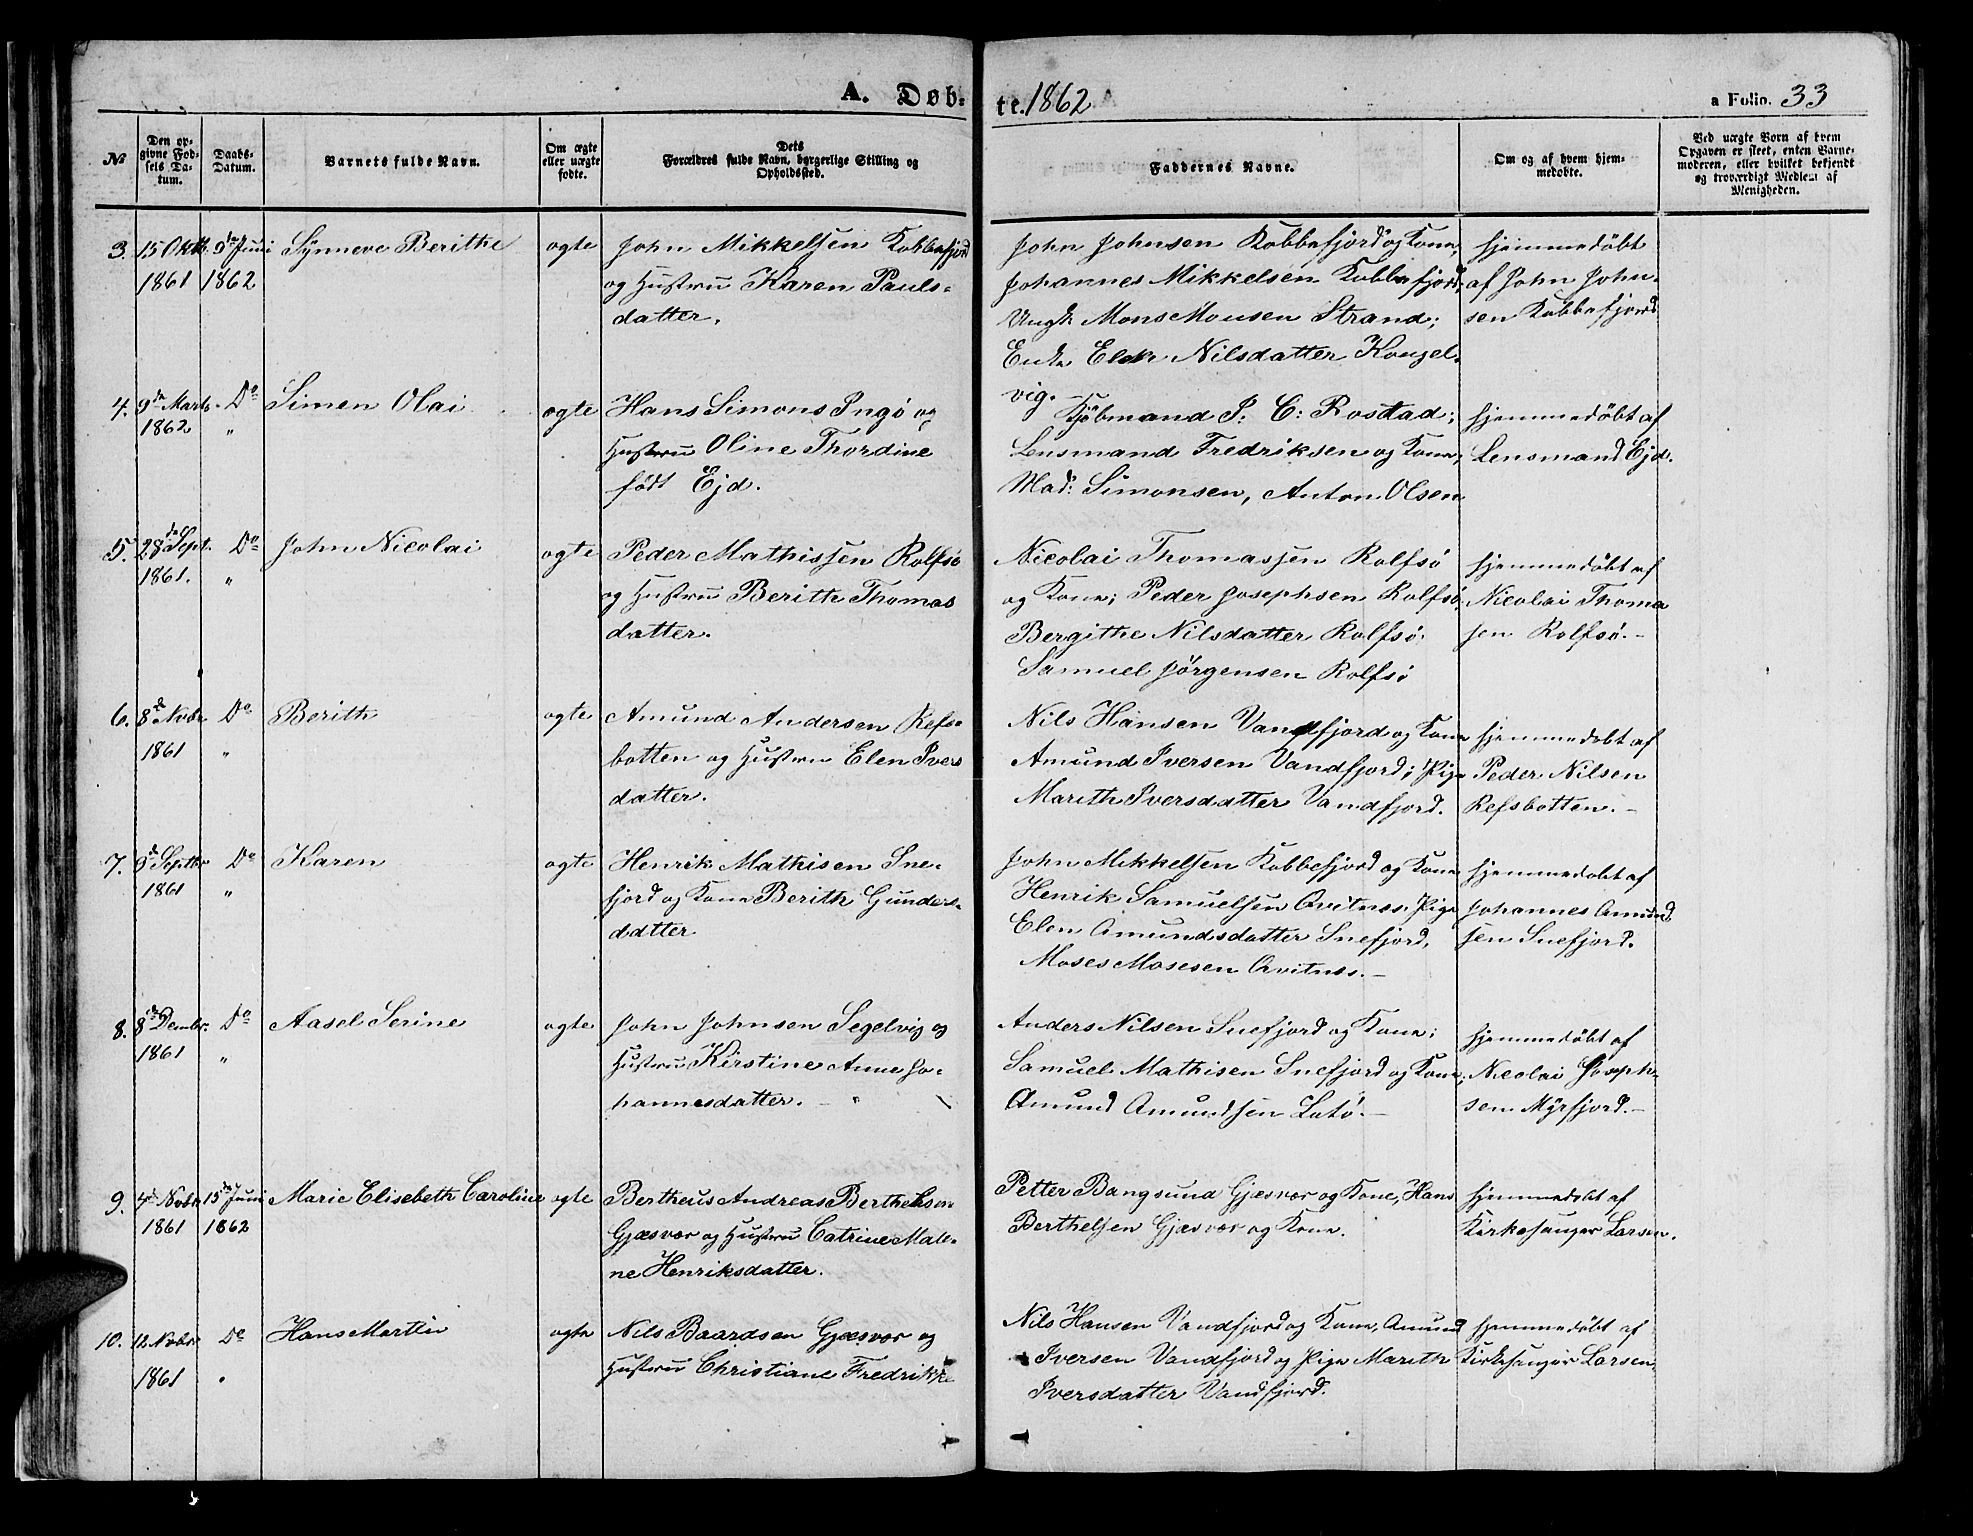 A. Døb-
te. 1862
a Folio. 33
№
Den op-
givne Fød-
sels Da-
tum.
Daabs-
Datum.
Barnets fulde Navn.
Om ægte
eller uægte
fødte.
Dets
Forældres fulde Navn, borgerlige Stilling og
Opholdssted.
Faddernes Navne.
Om og af hvem hjem-
medøbte.
Ved uægte Børn af hvem
Opgaven er skeet, enten Barne-
moderen, eller hvilket bekjendt
og troværdigt Medlem af
Menigheden.
3. 15 Oktb. 9de Juni Synneve Berithe ægte John Mikkelsen Kobbefjord
1861 1862 og Hustru Karen Pauls-
datter.
John Johnsen Kobbefjord og Kone,
Johannes Mikkelsen Kobbefjord,
Ungk: Mons Monsen Strand;
Enke Elen Nilsdatter Kongel-
vig.
hjemmedøbt
af John John-
sen Kobbefjord
4. 9de Marts Do Simen Olai ægte Hans Simons Ingø og
1862 " Hustru Oline Thordine
født Ejd.
Kjøbmand P: C: Rostad;
Lensmand Fredriksen og Kone,
Mad: Simonsen, Anton Olsen
hjemmedøbt af
Lensmand Ejd.
5. 28de Sept. Do John Nicolai ægte Peder Mathissen Rolfsø
1861. " og Hustru Berith Thomas
datter.
Nicolai Thomassen Rolfsø
og Kone; Peder Josephsen Rolfsø,
Bergithe Nilsdatter Rolfsø.
Samuel Jørgensen Rolfsø
hjemmedøbt af
Nicolai Thoma
sen Rolfsø.-
6. 8de Nvbr. Do Berith ægte Amund Andersen Refs-
1861 " botten og Hustru Elen Ivers
datter.
Nils Hansen Vandfjord og Kone
Amund Iversen Vandfjord; Pige
Marith Iversdatter Vandfjord.
hjemmedøbt af
Peder Nilsen
Refsbotten.-
7. 9de Septbr Do Karen ægte Henrik Mathisen Sne-
1861 " fjord og Kone Berith Gunders-
datter
John Mikkelsen Kobbefjord og Kone
Henrik Samuelsen Qvitnæs. Pige
Elen Amundsdatter Snefjord,
Moses Mosesen Qvitnæs.-
hjemmedøbt af
Johannes Amund
sen Snefjord.
8. 8de Dembr. Do Aasel Serine ægte John Johnsen Segelvig og
1861 " Hustru Kirstine Anne Jo-
hannesdatter.-
Anders Nilsen Snefjord og Kone;
Samuel Mathisen Snefjord og Kone,
Amund Amundsen Latø.-
hjemmedøbt af
Nicolai Joseph-
sen Myrfjord.-
9. 4de Nvbr. 15de Juni Marie Elisebeth Caroline ægte Bertheus Andreas Berthelsen
1861 1862 Gjæsvær og Hustru Catrine Male-
ne Henriksdatter.
Petter Bangsund Gjæsvær og Kone, Hans
Berthelsen Gjæsvær og Kone.
hjemmedøbt af
Kirkesanger Larsen.
10. 12 Nvbr. Do Hans Martin ægte Nils Baardsen Gjæsvær og
1861 " Hustru Christiane Fredrikke
Nils Hansen Vandfjord og Kone, Amund
Iversen Vandfjord og Pige Marith
Iversdatter Vandfjord.
hjemmedøbt af
Kirkesanger Larsen,